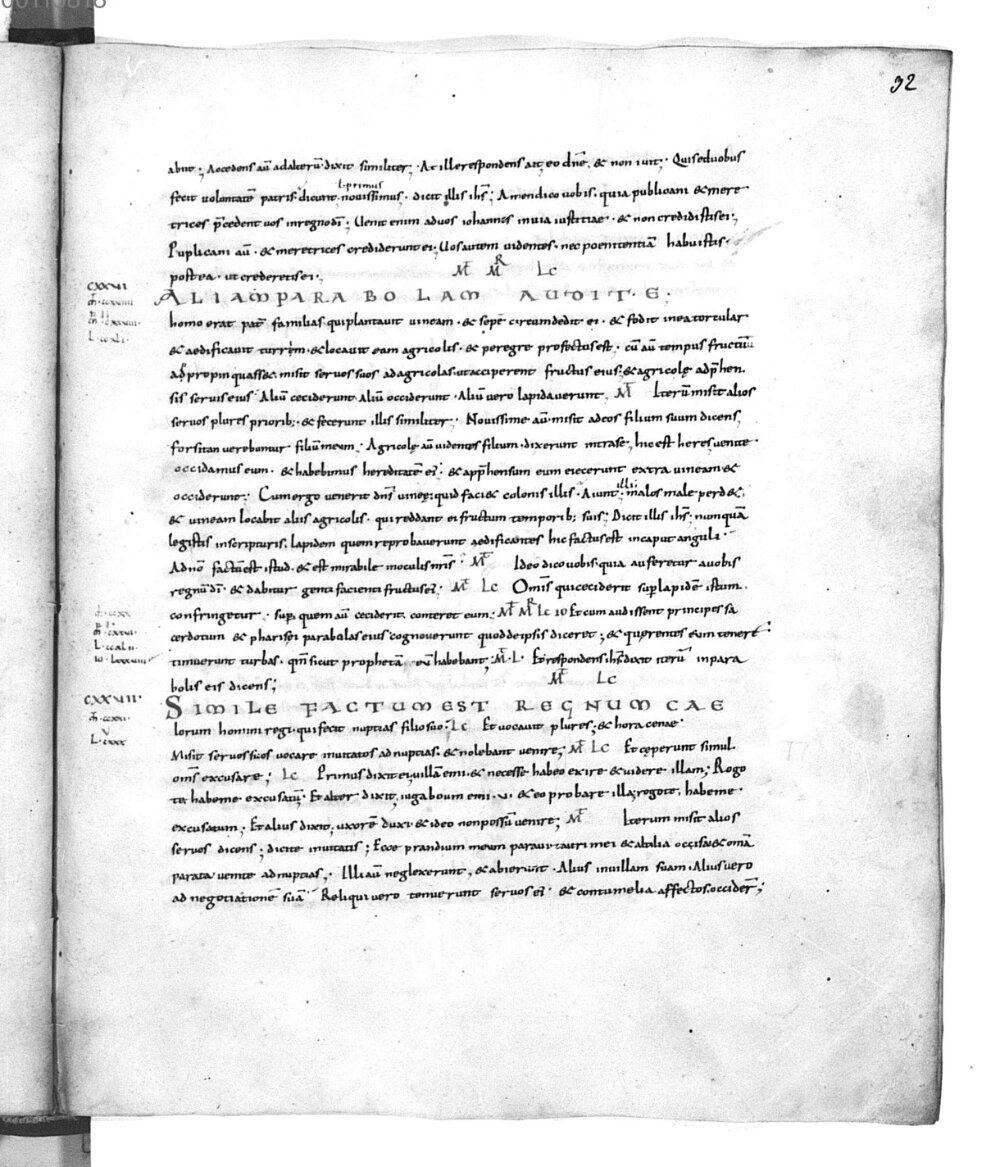 32
abiit; Accedens aū ad alterū dixit similiter; At ille respondens ait, eo dn̄e, & non iuit; Quis e duobus
ł primus
fecit uoluntatē patris; dicunt, nouissimus. dicit illis ih̄s; Amen dico uobis, quia publicani & mere
trices p̄cedent uos in regno dī; Uenit enim ad uos iohannes in uia iustitiae. & non credidistis ei;
Puplicani aū. & meretrices crediderunt ei; Uos autem uidentes. nec poenitentiā habuistis.
postea. ut crederetis ei; M̄ M̄ R Lc
CXXVI
ALIAM PARABOLAM AUDITE.
homo erat pat̄ familias qui plantauit uineam. & sepē circumdedit ei. & fodit in ea torcular
& aedificauit turrim. & locauit eam agricolis. & peregre profectus est. cū aū tempus fructuū
adpropinquass&. misit seruos suos ad agricolas. ut acciperent fructus eius; & agricolę adp̄hen
sis seruis eius Aliū ceciderunt Aliū occiderunt. Aliū uero lapidauerunt, M̄ Iterū misit alios
seruos plures priorib; & fecerunt illis similiter. Nouissime aū misit ad eos filium suum dicens,
forsitan uerebuntur filiū meum. Agricolę aū uidentes filium. dixerunt intra se, hic est heres uenite
occidamus eum. & habebimus hereditatē ei; & app̄hensum eum eiecerunt extra uineam &
illi
occiderunt; Cum ergo uenerit dn̄s uineę. quid faci& colonis illis. Aiunt. malos male perd&.
& uineam locabit aliis agricolis. qui reddant ei fructum temporib; suis; Dicit illis ih̄s; numquā
legistis in scripturis, lapidem quem reprobauerunt aedificantes hic factus est in caput anguli.
A dn̄o factū est istud. & est mirabile in oculis nr̄is. M̄ Ideo dico uobis. quia auferetur a uobis
regnū dī. & dabitur genti facienti fructus ei; M̄ Lc Omīs qui ceciderit sup̄ lapidē istum.
confringetur. sup̄ quem aū ceciderit. conteret eum; M̄ M̄ R Lc io Et cum audissent principes sa
cerdotum & pharisęi parabolas eius cognouerunt quod de ipsis diceret; & querentes eum tenere
timuerunt turbas. qm̄ sicut prophetā eū habebant; M̄ L. Et respondens. ih̄s dixit iterū in para
bolis eis dicens; M̄ Lc
CXXVII
SIMILE FACTUM EST REGNUM CAE
lorum homini regi. qui fecit nuptias filio suo. Lc Et uocauit plures; & hora cenae
Misit seruos suos uocare inuitatos ad nuptias. & nolebant uenire; M̄ Lc Et cęperunt simul
om̄s excusare; Lc Primus dixit ei, uillā emi. & necesse habeo exire & uidere illam; Rogo
te habe me excusatū; Et alter dixit, iuga boum emi .v. & eo probare illa, rogo te. habe me
excusatum; Et alius dixit, uxorē duxi & ideo non possū uenire; M̄ Iterum misit alios
seruos dicens; dicite inuitatis; Ecce prandium meum paraui tauri mei & altilia occisa & omīa
parata uenite ad nuptias. Illi aū neglexerunt, & abierunt. Alius in uillam suam. Alius uero
ad negotiationē suā. Reliqui uero tenuerunt seruos ei; & contumelia affectos. occider̄;